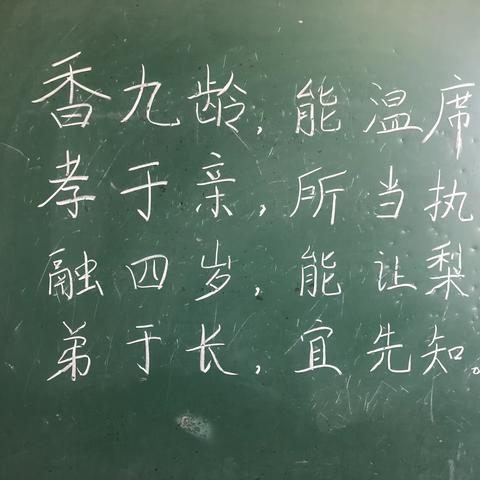 香九龄,能温席
孝于亲,所当执
融四岁,能让梨
弟于长,宜先知。